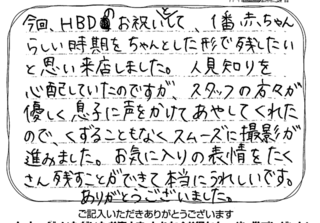 今回、HBDお祝いとして、1番赤ちゃん
らしい時期をちゃんとした形で残したい
と思い来店しました。人見知りを
心配していたのですが、スタッフの方々が
優しく息子に声をかけてあやしてくれた
ので、くずることもなくスムーズに撮影が
進みました。お気に入りの表情をたく
さん残すことができて本当にうれしいです。
ありがとうございました。
ご記入いただきありがとうございます